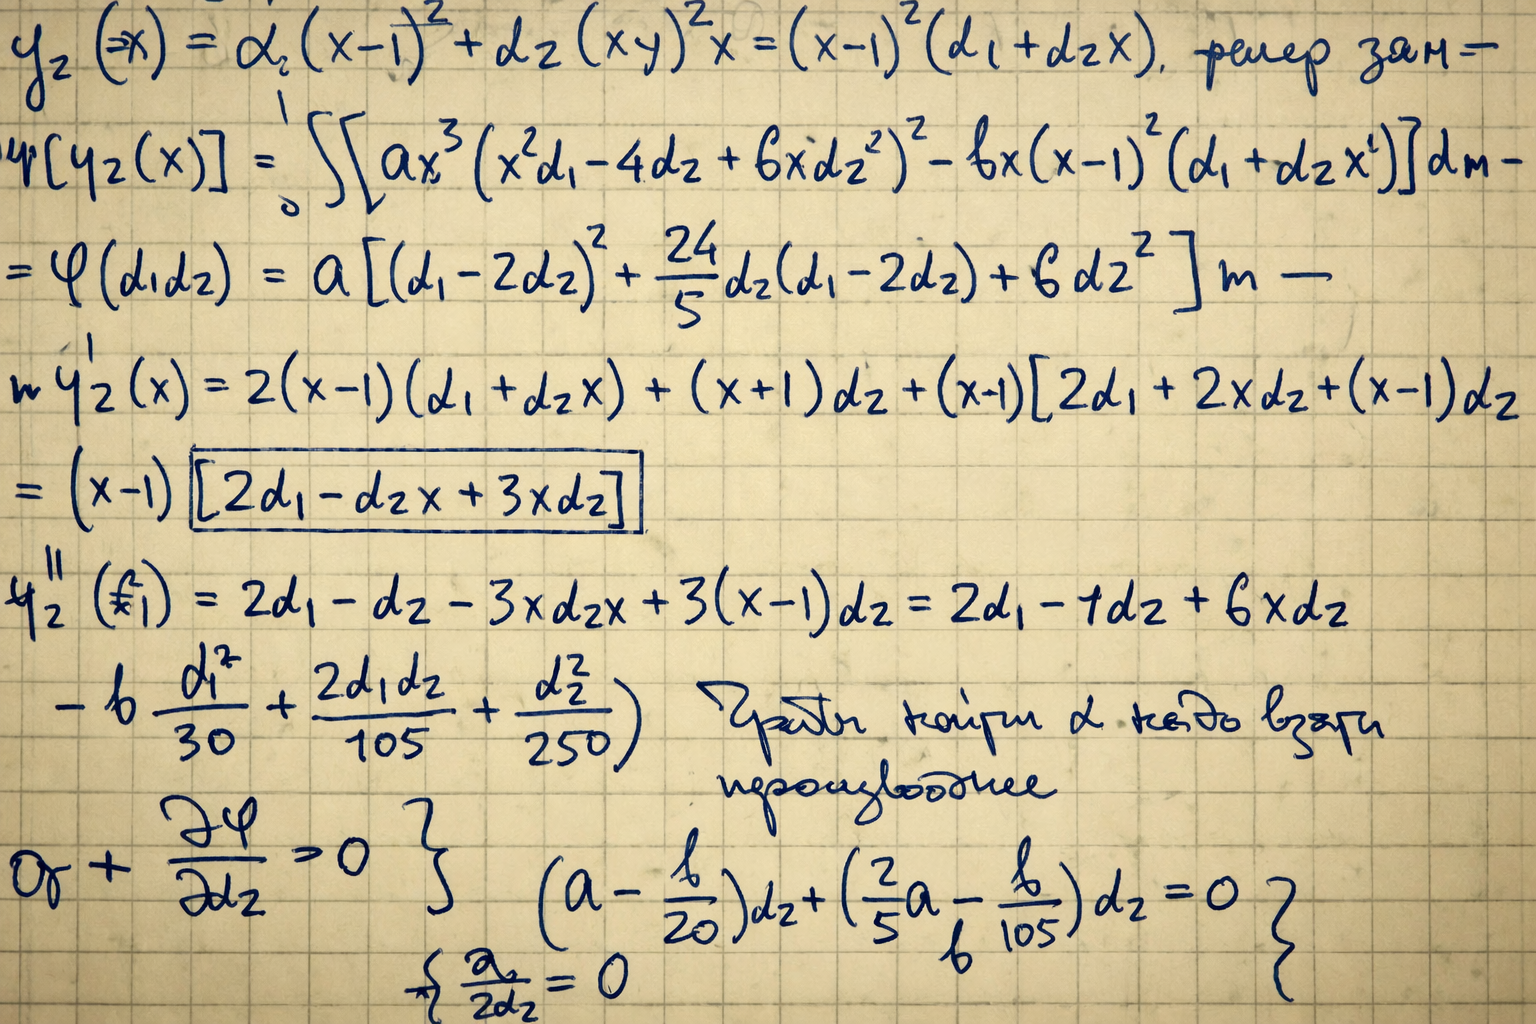 y₂ (x) = α₁(x−1)² + α₂ (xy)² x = (x−1)² (α₁ + α₂x).
Ψ[y₂(x)] = ∫₀¹ [ax³ (x²α₁ − 4α₂ + 6xα₂²)² − bx(x−1)² (α₁ + α₂x¹)] dm −
= φ(α₁α₂) = a [(α₁ − 2α₂)² + 24/5 α₂(α₁ − 2α₂) + 6α₂² ] m —
y₂' (x) = 2(x−1)(α₁ + α₂x) + (x+1)α₂ + (x−1)[2α₁ + 2xα₂ + (x−1)α₂
= (x−1) [2α₁ − α₂x + 3xα₂]
y₂'' = 2α₁ − α₂ − 3xα₂x + 3(x−1)α₂ = 2α₁ − 4α₂ + 6xα₂
− b α₁²/30 + 2α₁α₂/105 + α₂²/250) α взяти
+ ∂φ/∂α₂ = 0 } (a − b/20)α₂ + (2/5 a − b/105) α₂ = 0 }
b
{ /2α₂ = 0